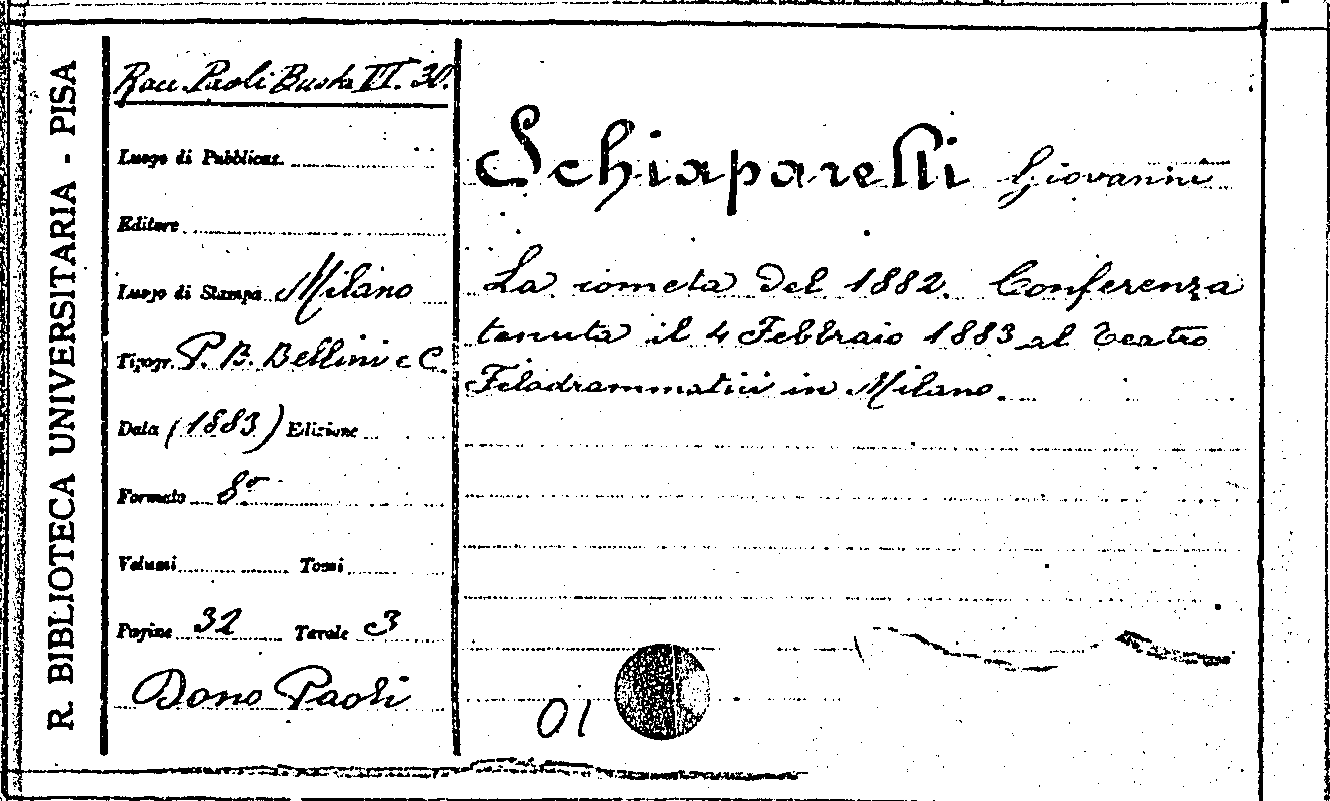 R. BIBLIOTECA UNIVERSITARIA - PISA
Racc. Paoli Busta III. 30.
Luogo di Pubblicaz.
Editore
Luogo di Stampa Milano
Tipogr. P. B. Bellini e C.
Data (1883) Edizione
Formato 8º
Volumi Tomi
Pagine 32 Tavole 3
Dono Paoli
Schiaparelli Giovanni
La cometa del 1882. Conferenza
tenuta il 4 Febbraio 1883 al Teatro
Filodrammatici in Milano.
01